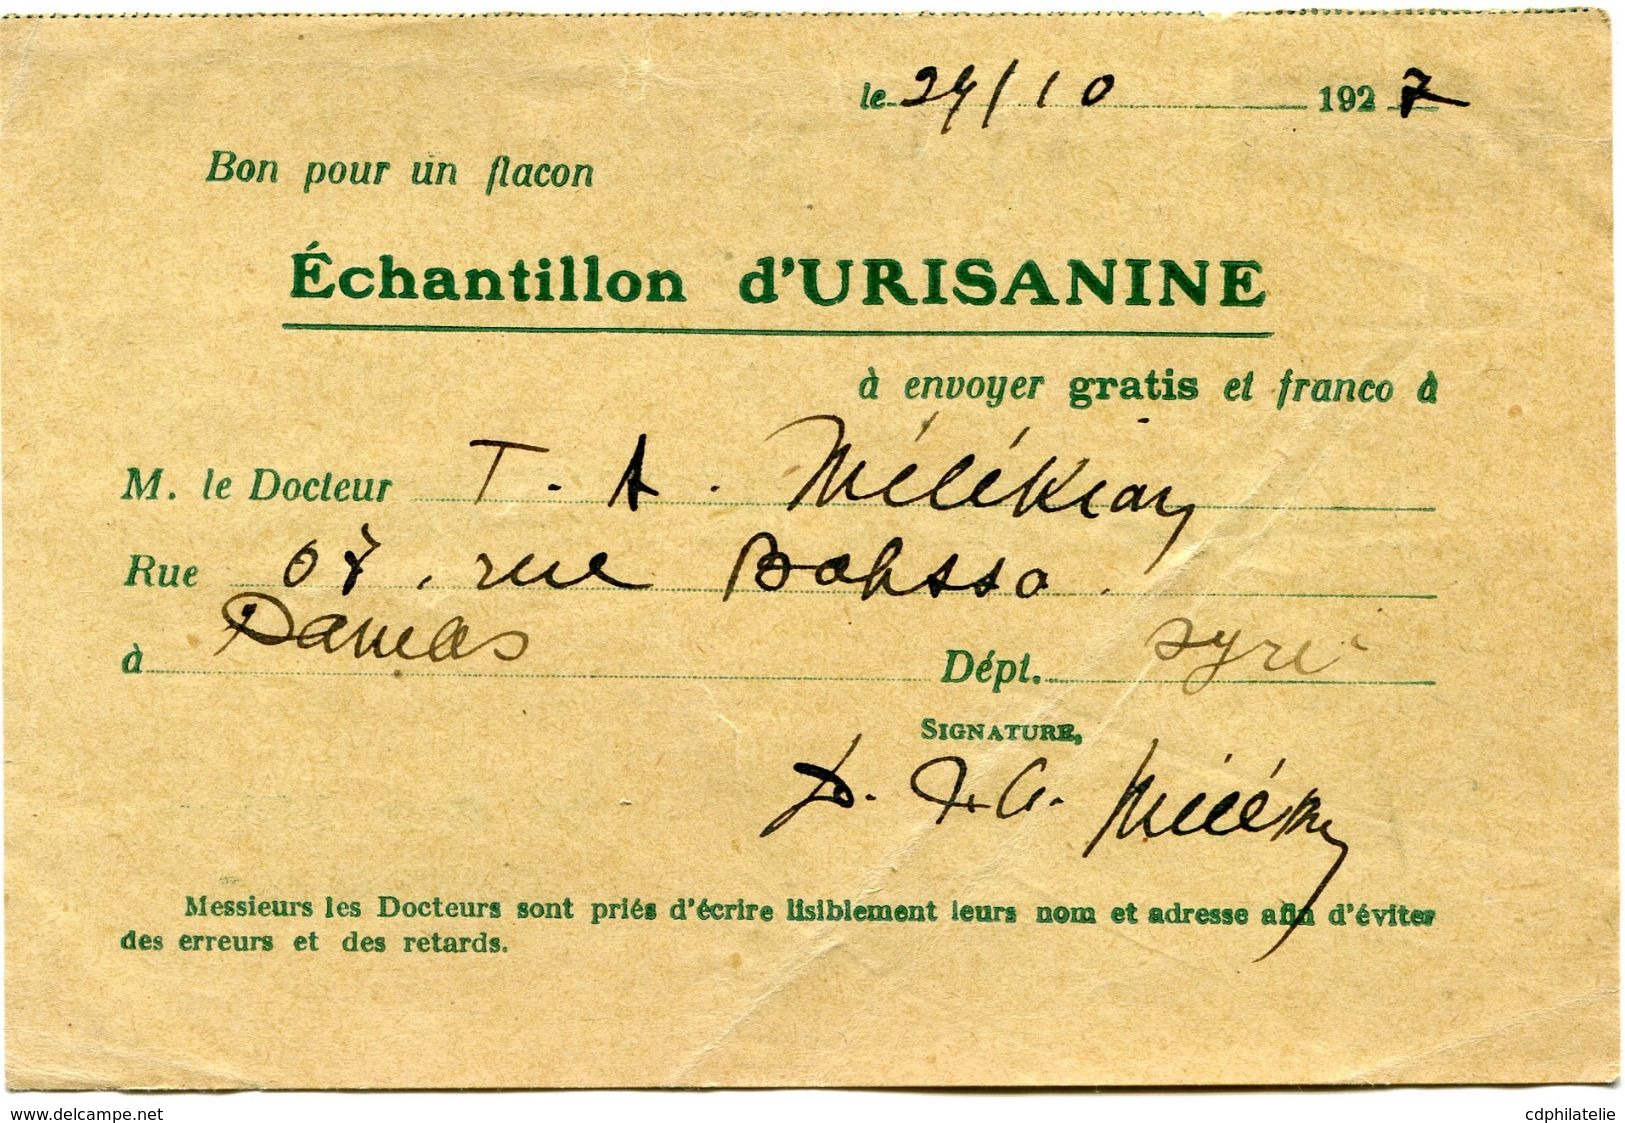 le 24/10 1927
Bon pour un flacon
Échantillon d'URISANINE
à envoyer gratis et franco à
M. le Docteur T. A. Mélékian
Rue 67, rue Bahssa.
à Damas Dépt. Syrie
SIGNATURE,
D. T. A. Mélék
Messieurs les Docteurs sont priés d'écrire lisiblement leurs nom et adresse afin d'éviter
des erreurs et des retards.
www.delcampe.net cdphilatelie